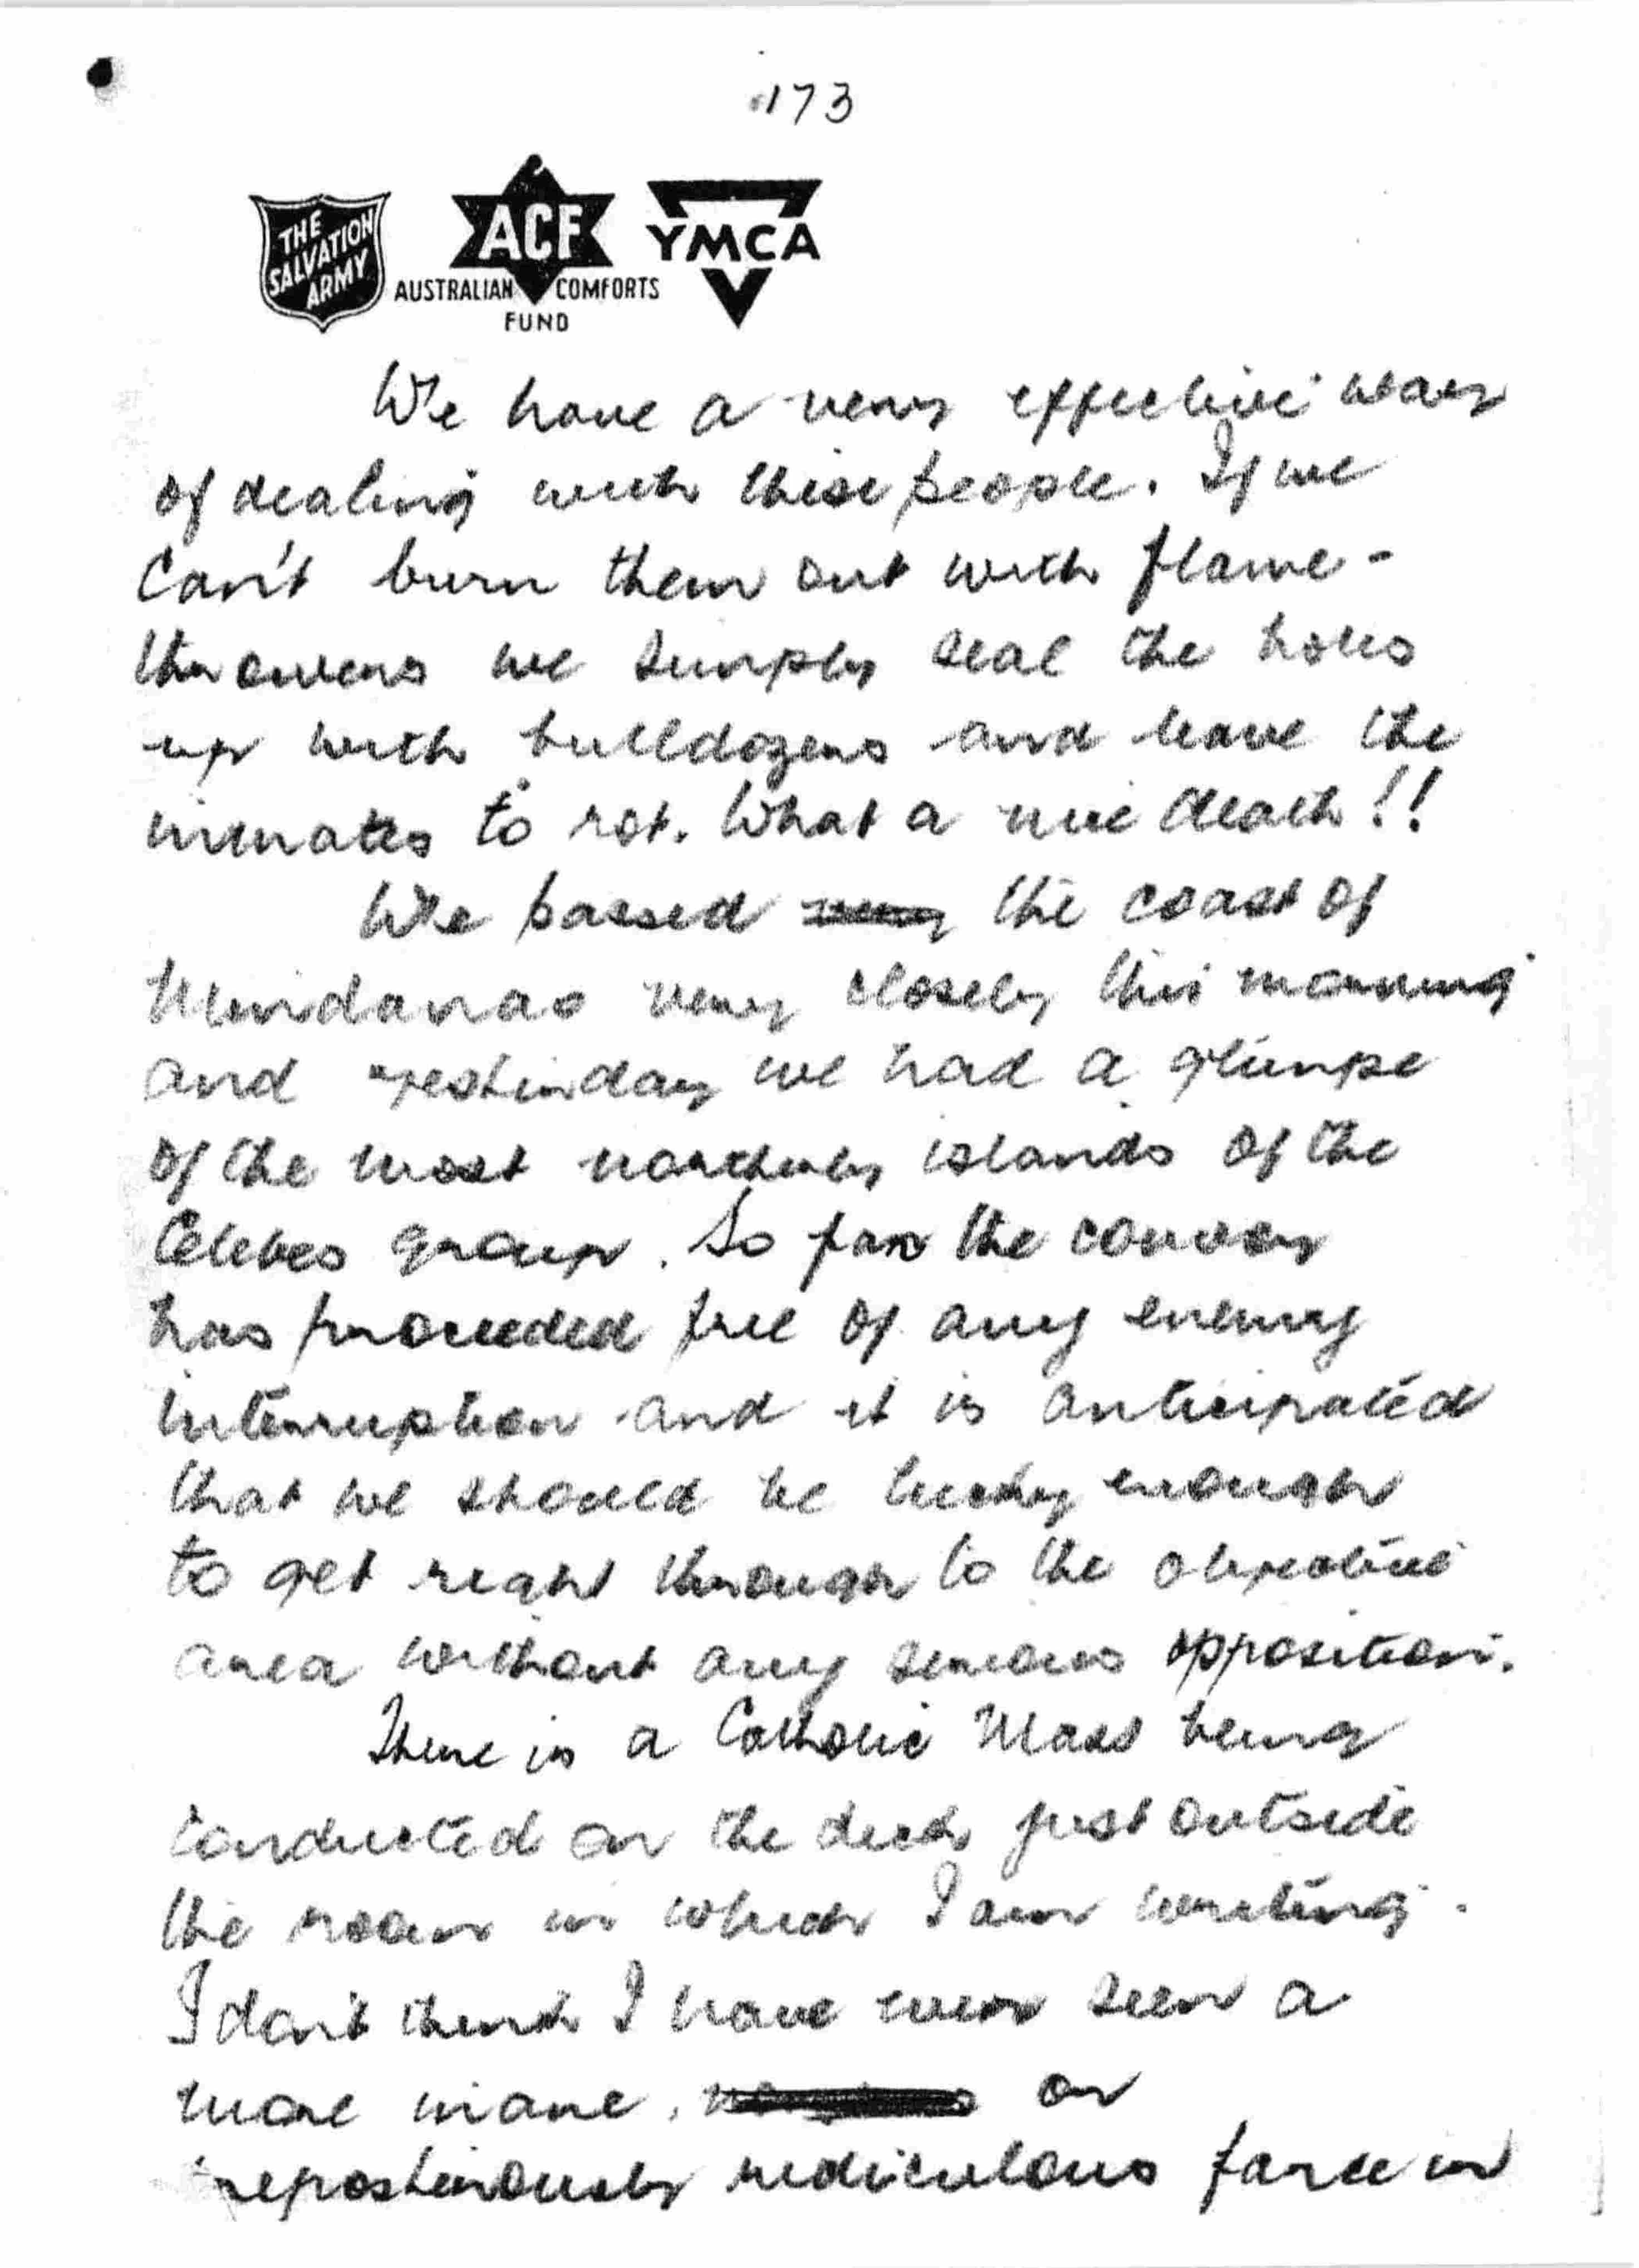 173
THE SALVATION ARMY
ACF
AUSTRALIAN COMFORTS FUND
YMCA
We have a very effective way
of dealing with these people. If we
can't burn them out with flame-
throwers we simply seal the holes
up with bulldozers and leave the
inmates to rot. What a nice death!!
We passed the coast of
Mindanao very closely this morning
and yesterday we had a glimpse
of the most northerly islands of the
Celebes group. So far the convoy
has proceeded free of any enemy
interruption and it is anticipated
that we should be lucky enough
to get right through to the objective
area without any serious opposition.
There is a Catholic Mass being
conducted on the deck just outside
the room in which I am writing.
I don't think I have ever seen a
more inane, or
preposterously rediculous farce in